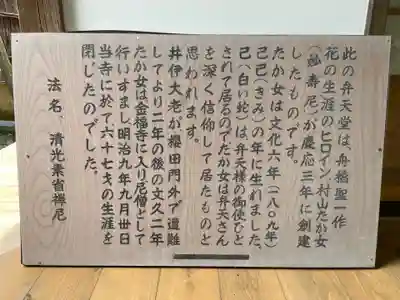 此の弁天堂は、舟橋聖一作
花の生涯のヒロイン村山たか女
(妙寿尼)が慶応三年に創建
したものです。
たか女は文化六年(一八〇九年)
己巳(きみ)の年に生れました。
己(白い蛇)は、弁天様の御使ひと
されて居るのでたか女は弁天さん
を深く信仰して居たものと
思われます。
井伊大老が櫻田門外で遭難
してより二年の後の文久二年
たか女は金福寺に入り尼僧として
行いすまし明治九年九月卅日
当寺に於て六十七才の生涯を
閉じたのでした。
法名、清光素省禅尼